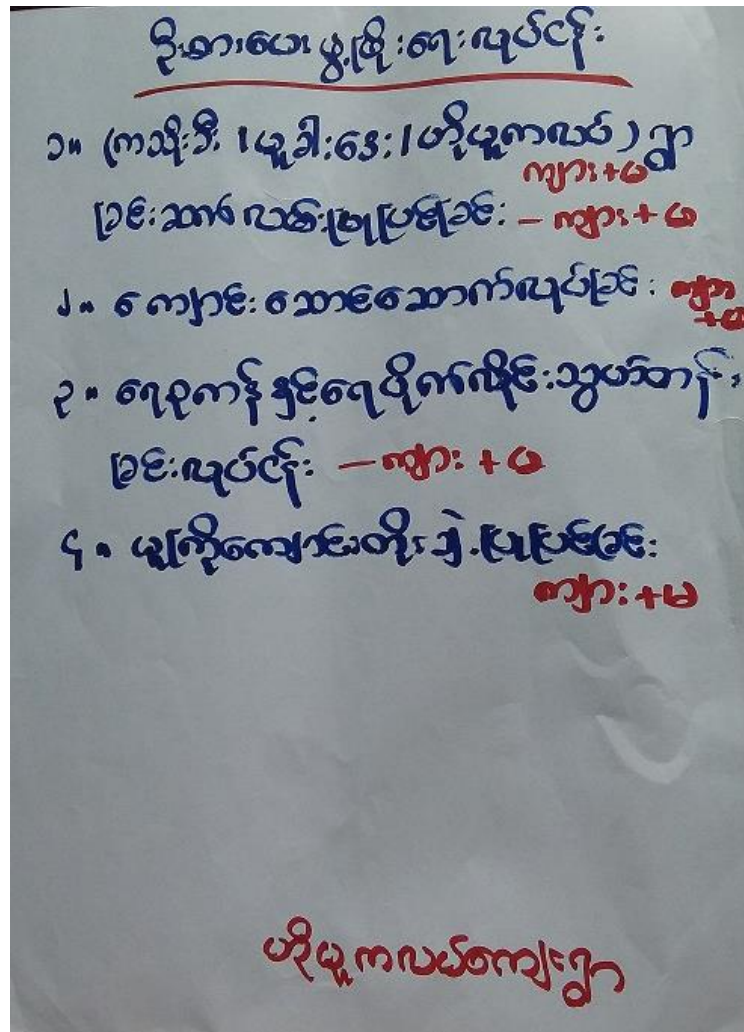 ဦးစားပေး ဖွံ့ဖြိုးရေး လုပ်ငန်း
၁။ (ကသိုးဒီး / ယူခါးဒေး / ဟိုယူကလပ်) ရွာ
ကျား+မ
ခြင်းဆက် လမ်းပြုပြင်ခြင်း - ကျား + မ
၂။ ကျောင်းဆောင်ဆောက်လုပ်ခြင်း ကျား
+မ
၃။ ရေစုကန် နှင့် ရေပိုက်လိုင်းသွယ်တန်း
ခြင်းလုပ်ငန်း - ကျား + မ
၄။ ယူကြိုကျောင်းတိုးချဲ့ပြုပြင်ခြင်း
ကျား+မ
ဟိုယူကလပ်ကျေးရွာ